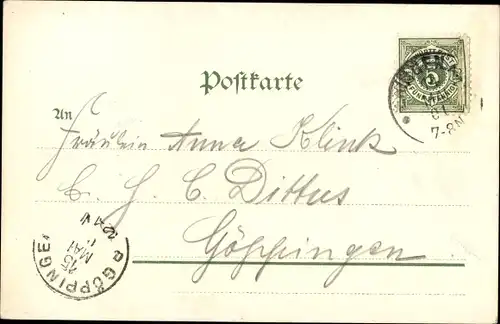 Postkarte
An
Fräulein Anna Klink
C. H. C. Dittus
Göppingen
FÜNF PFENNIG
7-8N
GÖPPINGEN
15
MAI